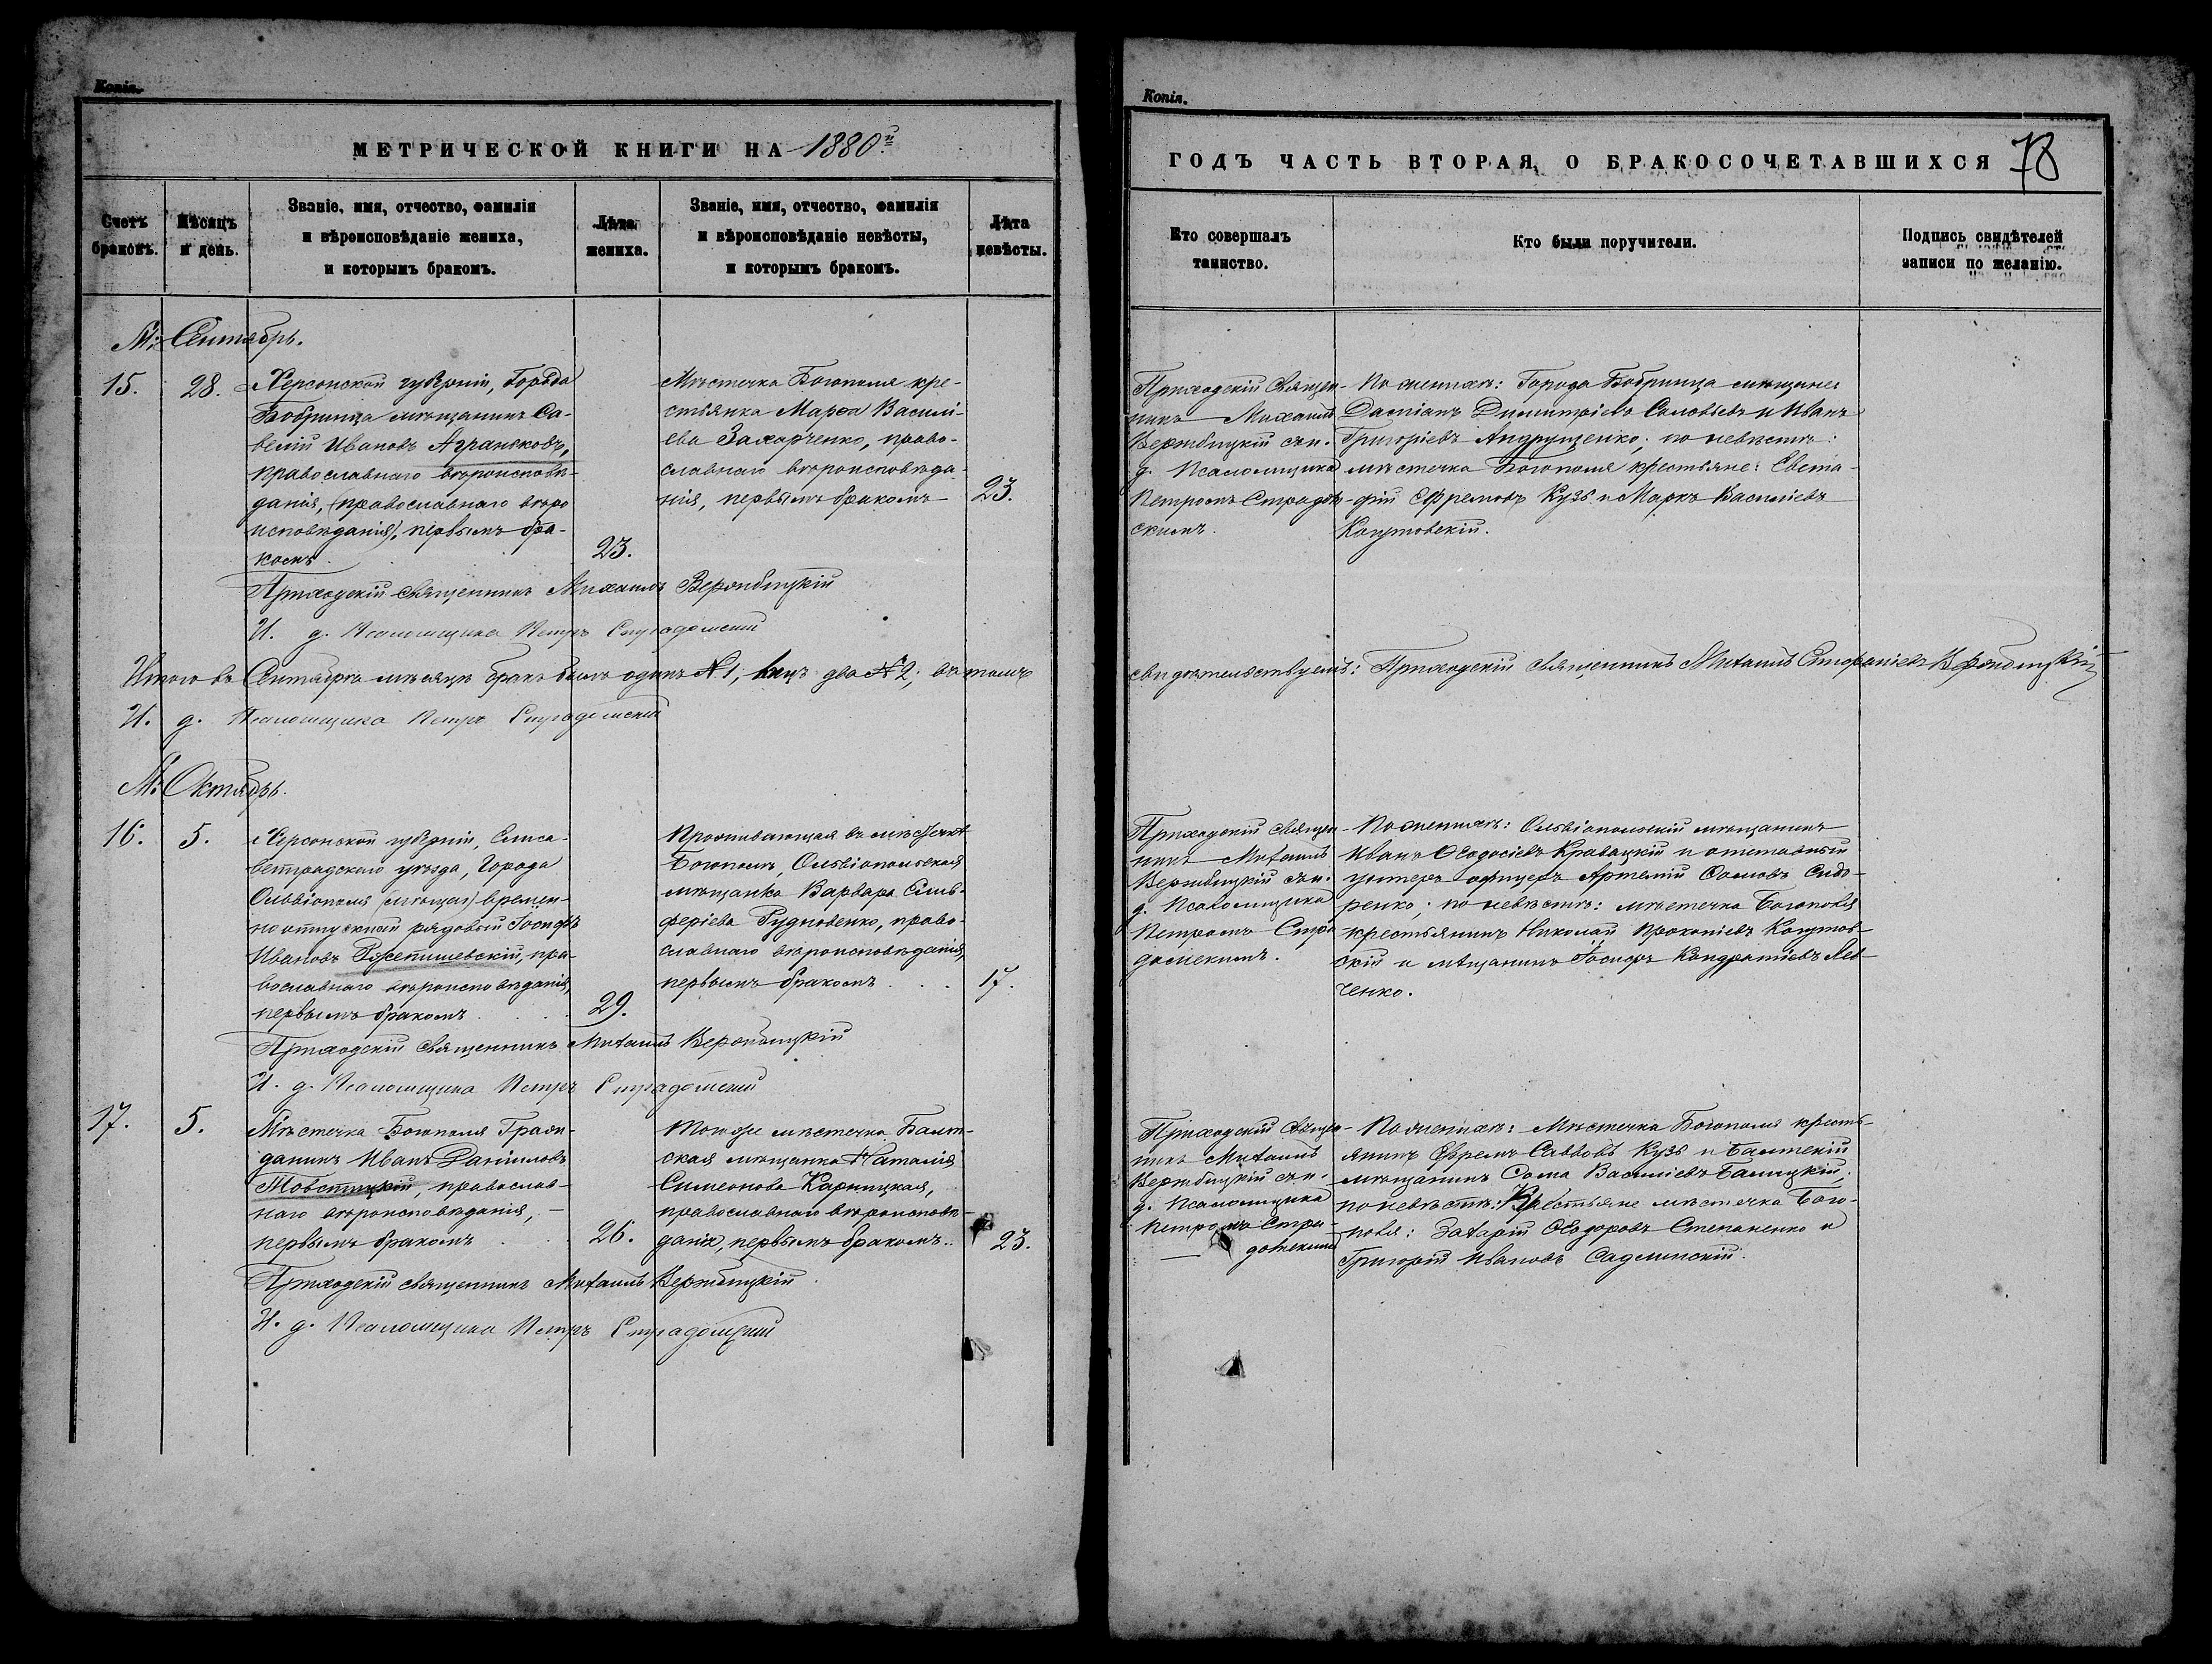 Копія.
МЕТРИЧЕСКОЙ КНИГИ НА 1880й
Счетъ браковъ.
Мѣсяцъ и день.
Званіе, имя, отчество, фамилія
и вѣроисповѣданіе жениха,
и которымъ бракомъ.
Лѣта жениха.
Званіе, имя, отчество, фамилія
и вѣроисповѣданіе невѣсты,
и которымъ бракомъ.
Лѣта невѣсты.
М: Сентябрь.
15.
28.
Херсонской губерніи, города
Бобринца мѣщанинъ Са-
велій Ивановъ
православнаго вѣроисповѣ-
данія, (православнаго вѣро
исповѣданія), первымъ бра-
комъ
23.
Мѣстечка Богополя кре-
стьянка Марѳа Василі-
ева Захарченко, право-
славнаго вѣроисповѣда-
нія, первымъ бракомъ
23.
Приходскій священникъ Михаилъ Вержбицкій
И. д. Псаломщика Петръ Страдомскій
Итого въ Сентябрѣ мѣсяцѣ бракъ былъ одинъ №1, лицъ два №2; въ томъ
И. д. Псаломщика Петръ Страдомскій
М: Октябрь.
16.
5.
Херсонской губерніи, Елиса-
ветградскаго уѣзда, города
Ольвіополя (мѣщан) времен-
но отпускный рядовый Іосифъ
Ивановъ Ржепишевскій, пра-
вославнаго вѣроисповѣданія,
первымъ бракомъ
29.
Проживающая въ мѣстечкѣ
Богополѣ, Ольвіопольская
мѣщанка Варвара Елев-
ферiева Рудновенко, право-
славнаго вѣроисповѣданія,
первымъ бракомъ
17.
Приходскій священникъ Михаилъ Вержбицкій
И. д. Псаломщика Петръ Страдомскій
17.
5.
Мѣстечка Богополя Граж-
данинъ Иванъ Даніиловъ
Товстицкій, православ-
наго вѣроисповѣданія, —
первымъ бракомъ
26.
Тогоже мѣстечка Балт-
ская мѣщанка Наталія
Симеонова Карницкая,
православнаго вѣроисповѣ-
данія, первымъ бракомъ..
23.
Приходскій священникъ Михаилъ Вержбицкій
И. д. Псаломщика Петръ Страдомскій
Копія.
ГОДЪ ЧАСТЬ ВТОРАЯ, О БРАКОСОЧЕТАВШИХСЯ
78
Кто совершалъ таинство.
Кто были поручители.
Подпись свидѣтелей
записи по желанію.
Приходскій Священ-
никъ Михаилъ
Вержбицкій съ и.
д. Псаломщика
Петромъ Страдом-
скимъ.
По женихѣ: Города Бобринца мѣщане:
Даміанъ Димитріевъ Соловьевъ и Иванъ
Григоріевъ Андрущенко; по невѣстѣ:
мѣстечка Богополя крестьяне: Евста-
фій Ефремовъ Кузь и Маркъ Василіевъ
Когутовскій.
свидѣтельствуемъ: Приходскій священникъ Михаилъ Стефаніевъ Вержбицкій
Приходскій священ-
никъ Михаилъ
Вержбицкій съ и.
д. Псаломщика
Петромъ Стра
домскимъ.
По женихѣ: Ольвіопольскій мѣщанинъ
Иванъ Ѳеодосіевъ Кравацкій и отставный
унтеръ офицеръ Артемій Ѳомовъ Сидо-
ренко; по невѣстѣ: мѣстечка Богополя
крестьянинъ Николай Прокопіевъ Когутов-
скій и мѣщанинъ Іосифъ Кондратіевъ Лев-
ченко.
Приходскій Священ-
никъ Михаилъ
Вержбицкій съ и.
д. Псаломщика
Петромъ Стра-
домскимъ
По женихѣ: Мѣстечка Богополя кресть-
янинъ Ефремъ Саввовъ Кузь и Балтскій
мѣщанинъ Ѳома Василіевъ Балицкій;
по невѣстѣ: Крестьяне мѣстечка Бого-
поля: Захарій Ѳеодоровъ Степаненко и
Григорій Ивановъ Садлинскій.